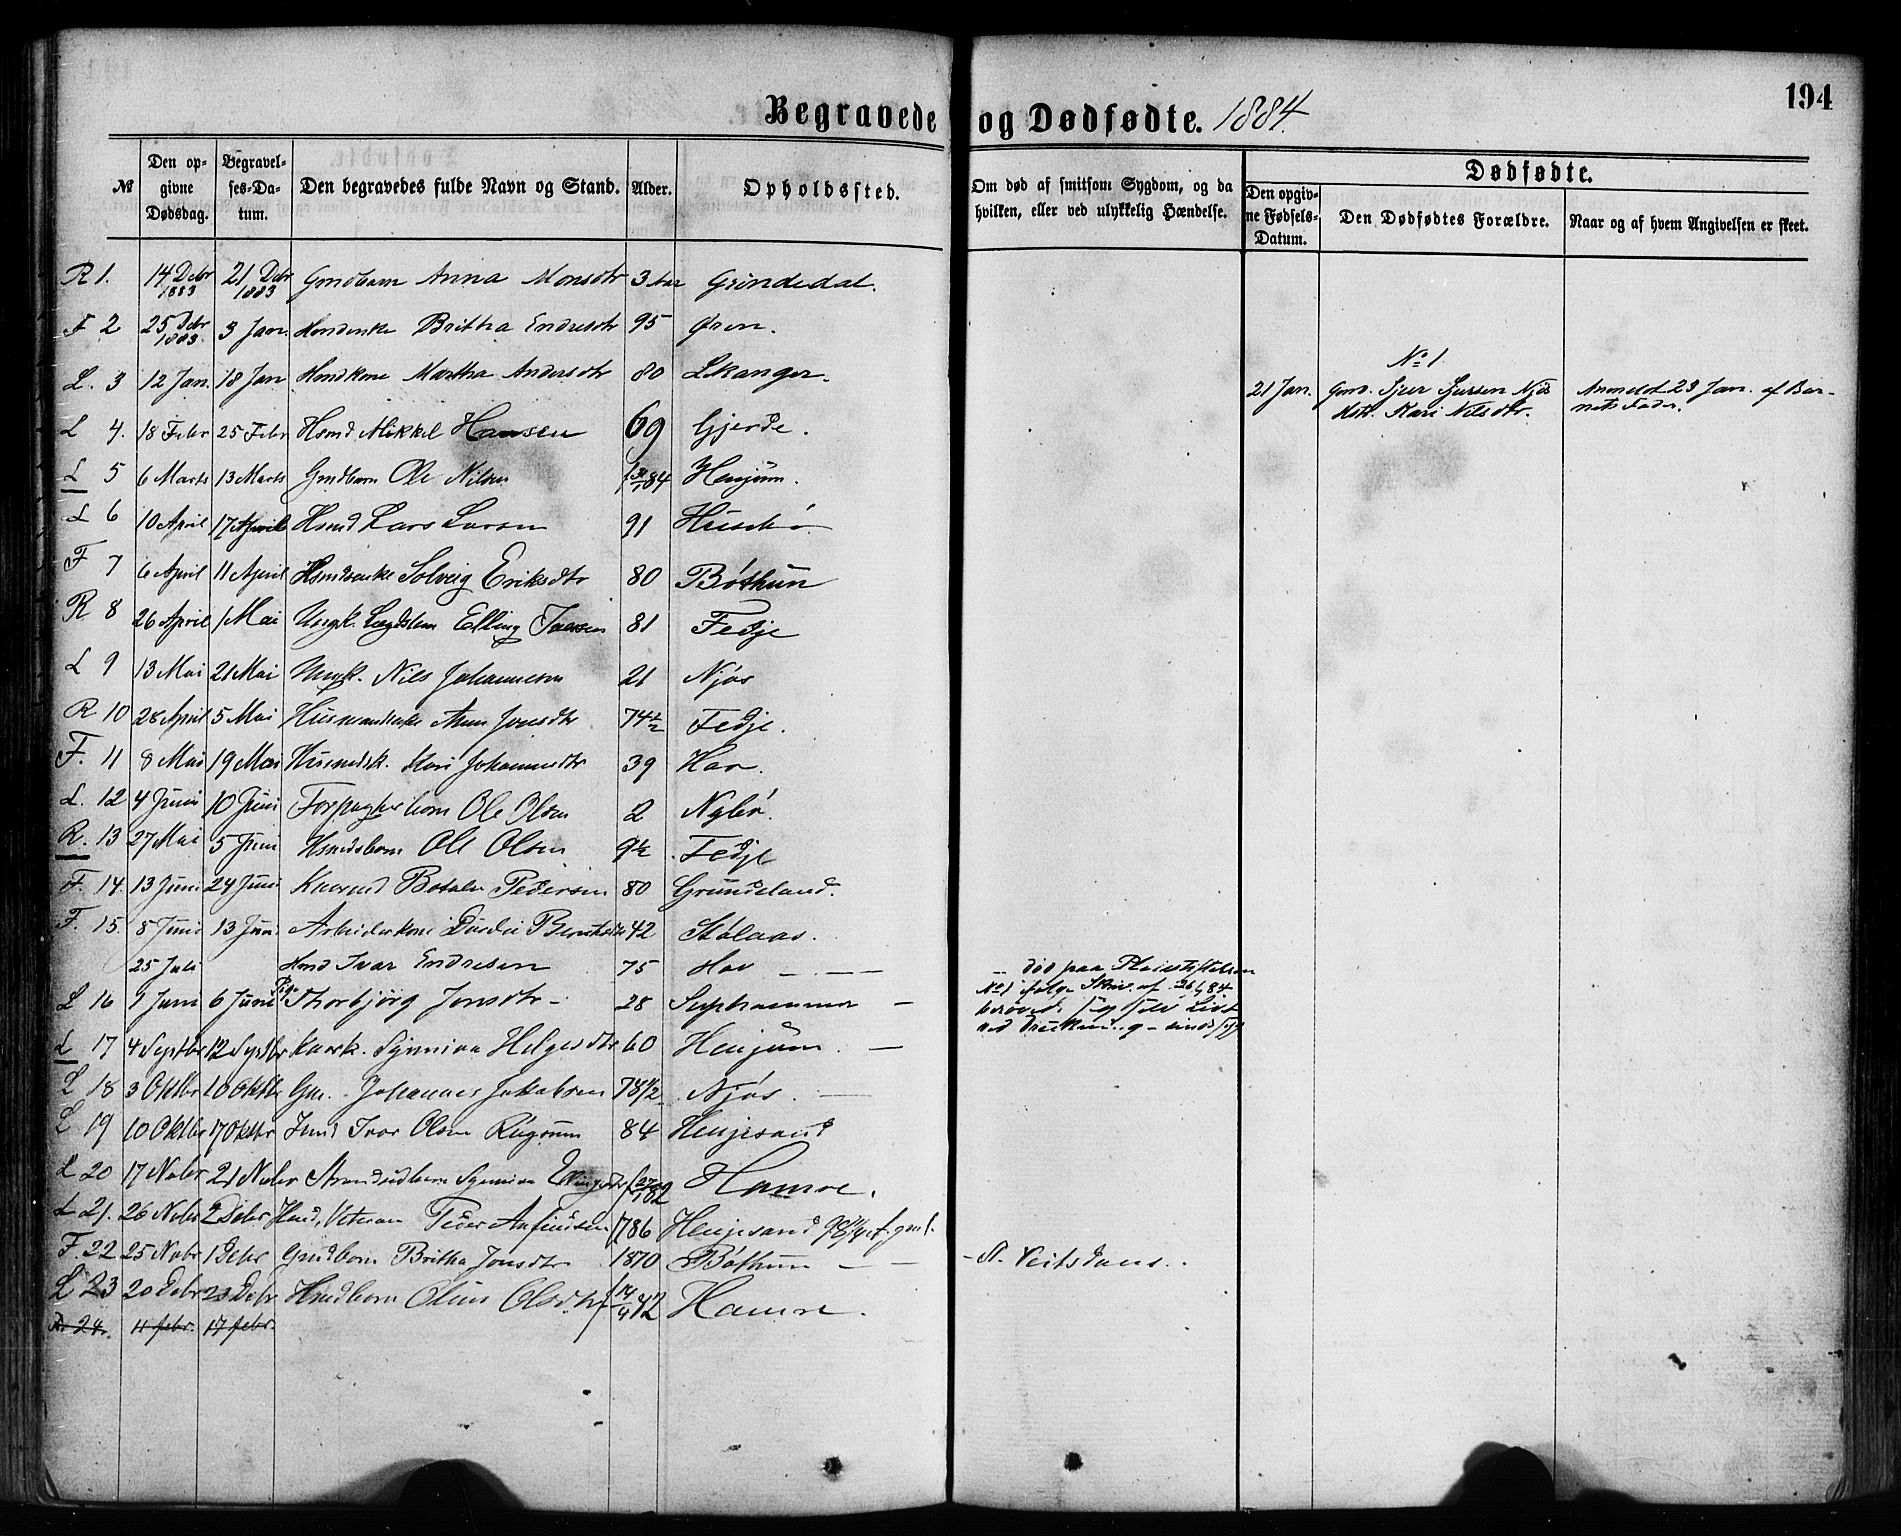 194
Begravede og Dødfødte. 1884.
№
Den opgivne Dødsdag.
Begravelses-Datum.
Den begravedes fulde Navn og Stand.
Alder.
Opholdssted.
Om død af smitsom Sygdom, og da hvilken, eller ved ulykkelig Hændelse.
Dødfødte.
Den opgivne Fødsels-Datum.
Den Dødfødtes Forældre.
Naar og af hvem Angivelsen er skeet.
R 1. 14 Debr 1883 21 Debr 1883 Gmdbarn Anna Monsdtr 3 Aar Grindedal.
F 2 25 Debr 1883 3 Jan. Britha Endresdtr 95 Øren.
L. 3 12 Jan. 18 Jan Martha Andersdtr 80 Lkanger.
No 1
21 Jan. Gmd. Njøs Anmeldt 23 Jan. af Bar-
Kari Nilsdtr. nets Fader.
L 4. 18 Febr 25 Febr Hsmd Mikkel Hansen 69 Gjerde.
L 5 6 Marts 13 Marts Gmdbarn Ole Nilsen 84 Henjum.
L 6 10 April 17 April Hsmd Lars Larsen 91 Husebø
F 7 6 April 11 April Hsmdenke Solveig Eriksdtr 80 Bøthun
R 8 26 April 1 Mai Ungk. Lægdslem Elling Iversen 81 Fedje
L 9 13 Mai 21 Mai Ungk. Nils Johannesen 21 Njøs
R 10 28 April 5 Mai Husmandsenke Anna Jonsdtr 74½ Fedje.
F. 11 8 Mai 19 Mai Husmdsk. Kari Johannesdtr 39 Hov.
L. 12 4 Juni 10 Juni Forpagterbarn Ole Olsen 2 Nybø.
R. 13 27 Mai 5 Juni Hsmdsbarn Ole Olsen 9½ Fedje
F. 14. 13 Juni 24 Juni Kaarmd Botolv Pedersen 80 Grundeland.
F. 15. 8 Juni 13 Juni Arbeiderkone Durdei 42 Stølaas.
25 Juli Hsmd Ivar Endresen 75 Hov død paa Pleiestiftelsen
L 16 1 Juni 6 Juni Pige Thorbjørg Jonsdtr 28 No 1 ifølge Skriv. af
berøvede sig selv Livet
ved Drukning
L 17 4 Septbr 12 Septbr Kaark. Synneva Helgesdtr 60 Henjum.
L 18 3 Oktbr 10 Oktbr Gm. Johannes Jakobsen 78½ Njøs.
L 19 10 Oktbr 17 Oktbr Ivar Olsen Rugsum 84 Henjesand
L 20 17 Nobr 21 Nobr Strandsidbarn Synneva 82 Hamre.
L 21. 26 Nobr 2 Debr Hsmd, Veteran Peder Anfindsen 1786 Henjesand
F. 22 25 Nobr 1 Debr Gmdbarn Britha Jonsdtr 1870 Bøthun St. Veitsdans.
L 23 20 Debr Hsmdbarn Hamre.
R. 24. 11 febr. 17 febr.